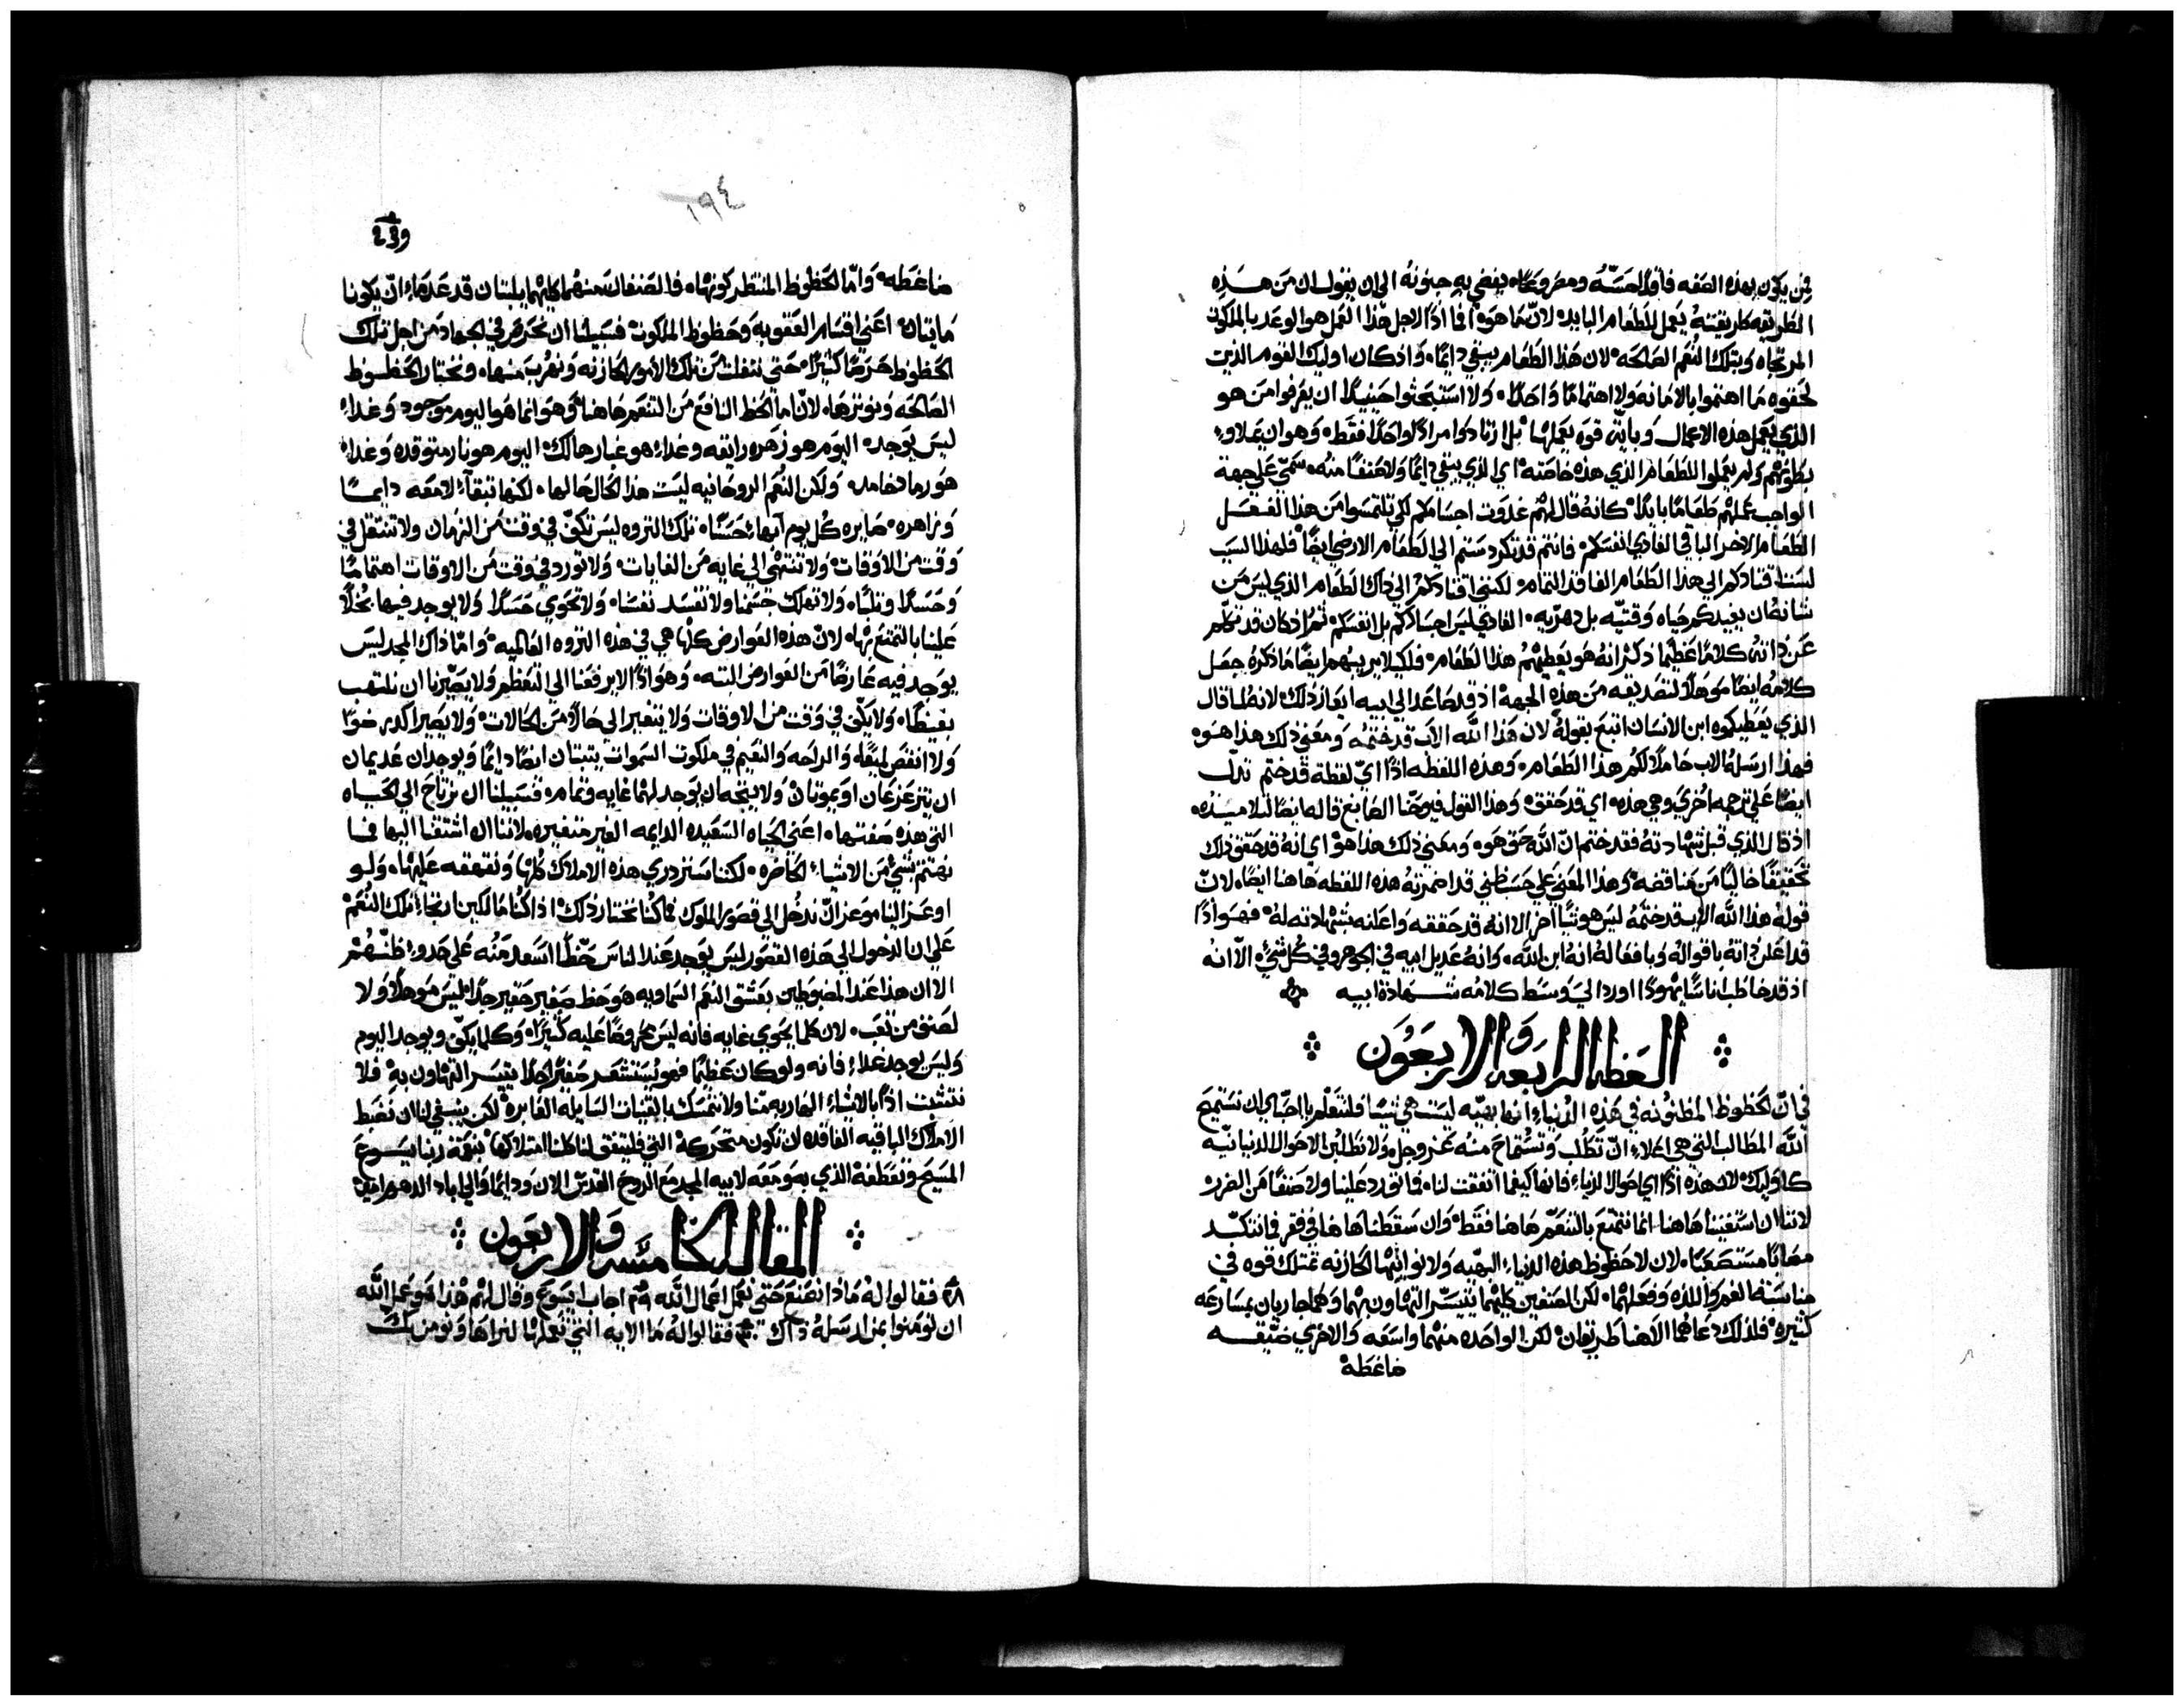 فمن يكون بهذه الصفه فاقد الحسّه ومصروعًا يفضي به جنونه الى ان يقول ان من هذه
الطريقه كاريقته يعمل للطعام البايد لانّ ما هوه فاذًا لاجل هذا العمل هو الوعد بالملكوت
المرتجاه وبتلك النعم الصالحه لان هذا الطعام يبقي دايمًا واذ كان اوليك القوم الذين
لحقوه ما اهتموا بالامانه ولا اهتمامًا واحدًا ولا استبحثوا حينيدٍ ان يعرفوا من هو
الذي يعمل هذه الاعمال وباية قوه يعملها بل ارتادوا مرادًا واحدًا فقط وهو ان يملاوا
بطونهم ولم يعملوا للطعام الذي هذه خاصته اي الذي يبقي دايمًا ولا صنفًا منه سمّي على جهة
الواجب عملهم طعامًا بايدًا كانه قال لهم غدوت اجسامكم لكي تلتمسوا من هذا الفعل
الطعام الاخر الباقي الغادي انفسكم فانتم قد تكردستم الى الطعام الارضي ايضًا فلهذا السبب
لست اقتادكم الى هذا الطعام الفاقد التمام لكنني اقتادكم الى ذاك الطعام الذي ليس من
شانه ان يفيدكم حياه وقتيّه بل دهريه الغادي ليس اجسادكم بل انفسكم ثم اذ كان قد تكلم
عن ذاته كلامًا عظيمًا ذكر انه هو يعطيهم هذا الطعام فلكيلا يريبهم ايضًا ما ذكره جعل
كلامه ايضًا موهلًا لتصديقه من هذه الجهه اذ قد صاعد الى ابيه ايعاز ذلك لانه لما قال
الذي يعطيكموه ابن الانسان اتبع بقوله لان هذا الله الاب قد ختمه ومعني ذلك هذا هوه
فهذا ارسله الاب حاملًا لكم هذا الطعام وهذه اللفظه اذًا اي لفظة قد ختم تدل
ايضًا على ترجمه اخري وهي هذه اي قد حقق وهذا القول فيوحنا الصابغ قاله ايضًا لتلاميذه
اذ قال الذي قبل شهادته فقد ختم انّ الله حق هوه ومعني ذلك هذا هو اي انه قد حقق ذلك
تحقيقًا خاليًا من مناقضه وهذا المعني على حسب ظني قد اضمرته هذه اللفظه هاهنا ايضًا لانّ
قوله هذا الله الاب قد ختمه ليس هو شيًا اخر الا انه قد حققه واعلنه بشهادته له فهو اذًا
قد اعلن ذاته باقواله وبافعاله انه ابن الله وانه عديل ابيه في الجوهر وفي كل شيء الّا انه
اذ قد خاطب اناسًا يهودًا اورد الي وسط كلامه شهادة ابيه
العظه الرابعه والاربعون
في انّ الحظوظ المظنونه في هذه الدنيا انها بهيّه ليست هي شيًا فلنتعلم يا احبّاي ان نستميح
الله المطالب التي هي اهلاء انّ تطلب وتستماح منه عز وجل ولا نطلبن الاحوال الدنيانيّه
كاوليك لان هذه اذًا اي احوال الدنياء فانها كيفما اتفقت لنا فما تورد علينا ولا صنفًا من الضرر
لاننا ان استغنينا هاهنا انما نتمتع بالتنعّم هاهنا فقط وان سقطنا هاهنا في فقر فما نتكبّد
مصابًا مستصعبًا لان لا حظوظ هذه الدنياء البهيّه ولا نوايبها الحازنه تمتلك قوه في
مناسبة الغم واللذه وفعلهما لكن الصنفين كليهما تتيسّر التهاون بهما وهما جاريان بمسارعه
كثيره فلذلك دعاهما الاهنا طريقان لكن الواحده منهما واسعه والاخري ضيّقه
ضاغطه
١٩٤
ضاغطه وامّا الحظوظ المنتظر كونهاء فالصنفان منهما كليهما يلبثان قد عدما انّ يكونا
مايتان اعني اقسام العقوبه وحظوظ الملكوت فسبيلنا ان نحرص في الجهاد من اجل تلك
الحظوظ حرصًا كثيرًا حتي نتفلت من تلك الامور الحازنه ونهرب منها ونختار الحظوظ
الصالحه ونوثرها لانّ ما الحظ النافع من التنعم هاهنا وهو انما هو اليوم موجود وغداء
ليس يوجد اليوم هو زهره رايقه وغداء هو غبار هالك اليوم هو نار متوقده وغداء
هو رماد خامد ولكن النعم الروحانيه ليست هذا الحال حالها لكنها تبقاء لامعه دايمًا
وزاهره صايره كل يوم ابهاء حسنًا تلك الثروه ليس تكفّ في وقت من الزمان ولا تنتقل في
وقت من الاوقات ولا تنتهي الى غايه من الغايات ولا تورد في وقت من الاوقات اهتمامًا
وحسدًا وثلبًا ولا تهلك جسمنا ولا تفسد نفسًا ولا تحوي حسدًا ولا يوجد فيها بخلًا
علينا بالتمتع بها لانّ هذه العوارض كلها هي في هذه الثروه العالميه وامّا ذاك المجد ليس
يوجد فيه عارضًا من العوارض البته وهو اذًا لا يرفعنا الى التعظم ولا يصيّرنا ان نلتهب
بغيظًا ولا يكفّ في وقت من الاوقات ولا يتغير الى حالة من الحالات ولا يصير اكدر ضوًا
ولا انقص لمعًا والراحه والنعيم في ملكوت السموات يثبتان ايضًا دايمًا ويوجدان عديمان
ان يتزعزعان او يموتان ولا يتجه ان يوجد لهما غايه وتمام فسبيلنا ان نرتاح الى الحياه
التي هذه صفتها اعني الحياه السعيده الدايمه الغير متغيره لاننا ان اشتقنا اليها فما
نهتم بشيء من الاشياء الحاضره لكننا سنزدري هذه الاملاك كلها ونقهقه عليها ولو
اوعز الينا موعز انّ ندخل الى قصور الملوك فما كنا نختار ذلك اذا كنا مالكين ارتجاء تلك النعم
علي ان الدخول الى هذه القصور ليس يوجد عند الناس حظًا اسعد منه علي حدو ظنّهم
الا ان هذا عند المضبوطين بعشق النعم السماويه هو حظ صغير حقير جدًا ليس موهلًا ولا
لصنف من تعب لان كلما يحوي غايه فانه ليس محروصًا عليه كثيرًا وكلما يكفّ ويوجد اليوم
وليس يوجد غداء فانه ولو كان عظيمًا فهو يستشعر صغيرًا جدًا يتيسر التهاون به فلا
نتشبث اذًا بالاشياء الهاربه منا ولا نتمسك بالقنيات السايله العابره لكن ينبغي لنا ان نضبط
الاملاك الباقيه الفاقده ان تكون متحركه التي فليتفق لنا كلنا امتلاكها بنعمة ربنا يسوع
المسيح وتعطفه الذي به ومعه لابيه المجد مع الروح القدس الان ودايمًا والى اباد الدهور امين
المقاله الخامسه والاربعون
٢٨ فقالوا له ماذا نصنع حتي نعمل اعمال الله ٢٩ اجاب ايسوع وقال لهم هذا هو عمل الله
ان تومنوا بمن ارسله ذاك ٣٠ فقالوا له ما الايه التي تعملها لنراها ونومن بك